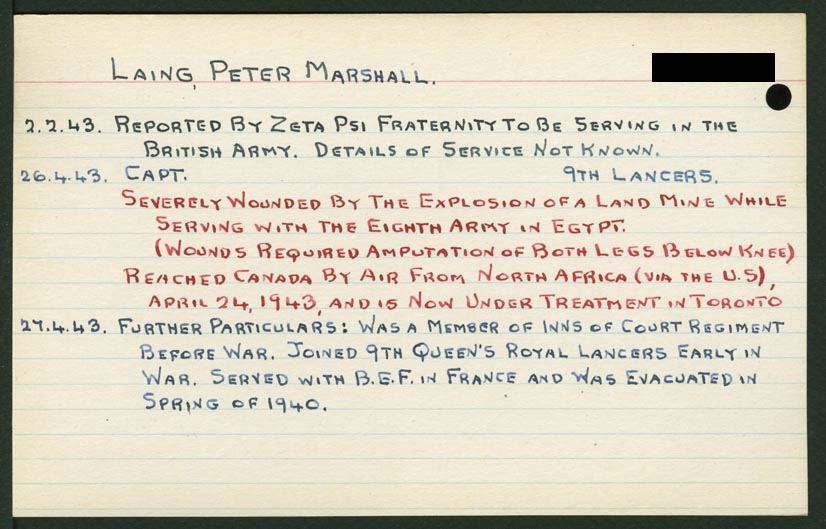 LAING, PETER MARSHALL.
2.2.43. REPORTED BY ZETA PSI FRATERNITY TO BE SERVING IN THE
BRITISH ARMY. DETAILS OF SERVICE NOT KNOWN.
26.4.43. CAPT. 9TH LANCERS.
SEVERELY WOUNDED BY THE EXPLOSION OF A LAND MINE WHILE
SERVING WITH THE EIGHTH ARMY IN EGYPT.
(WOUNDS REQUIRED AMPUTATION OF BOTH LEGS BELOW KNEE)
REACHED CANADA BY AIR FROM NORTH AFRICA (VIA THE U.S),
APRIL 24, 1943, AND IS NOW UNDER TREATMENT IN TORONTO
27.4.43. FURTHER PARTICULARS: WAS A MEMBER OF INNS OF COURT REGIMENT
BEFORE WAR. JOINED 9TH QUEEN'S ROYAL LANCERS EARLY IN
WAR. SERVED WITH B.E.F. IN FRANCE AND WAS EVACUATED IN
SPRING OF 1940.